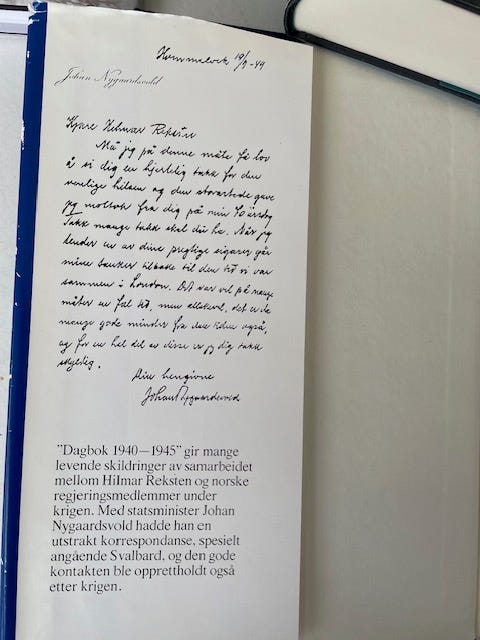 Hommelvik 19/9-49
Johan Nygaardsvold
Kjære Helmer Reksten
Må jeg på denne måte få lov
å si dig en hjertelig takk for den
venlige hilsen og den storartede gave
jeg mottok fra dig på min 70 årsdag
Takk mange takk skal du ha. Når jeg
tender en av dine pregtige sigarer går
mine tanker tilbake til den tid vi var
sammen i London. Det var vel på mange
måter en fæl tid, men allikevel, det er da
mange gode minder fra den tiden også,
og for en hel del av disse er jeg dig takk
skyldig.
Din hengivne
Johan Nygaardsvold
"Dagbok 1940—1945" gir mange
levende skildringer av samarbeidet
mellom Hilmar Reksten og norske
regjeringsmedlemmer under
krigen. Med statsminister Johan
Nygaardsvold hadde han en
utstrakt korrespondanse, spesielt
angående Svalbard, og den gode
kontakten ble opprettholdt også
etter krigen.